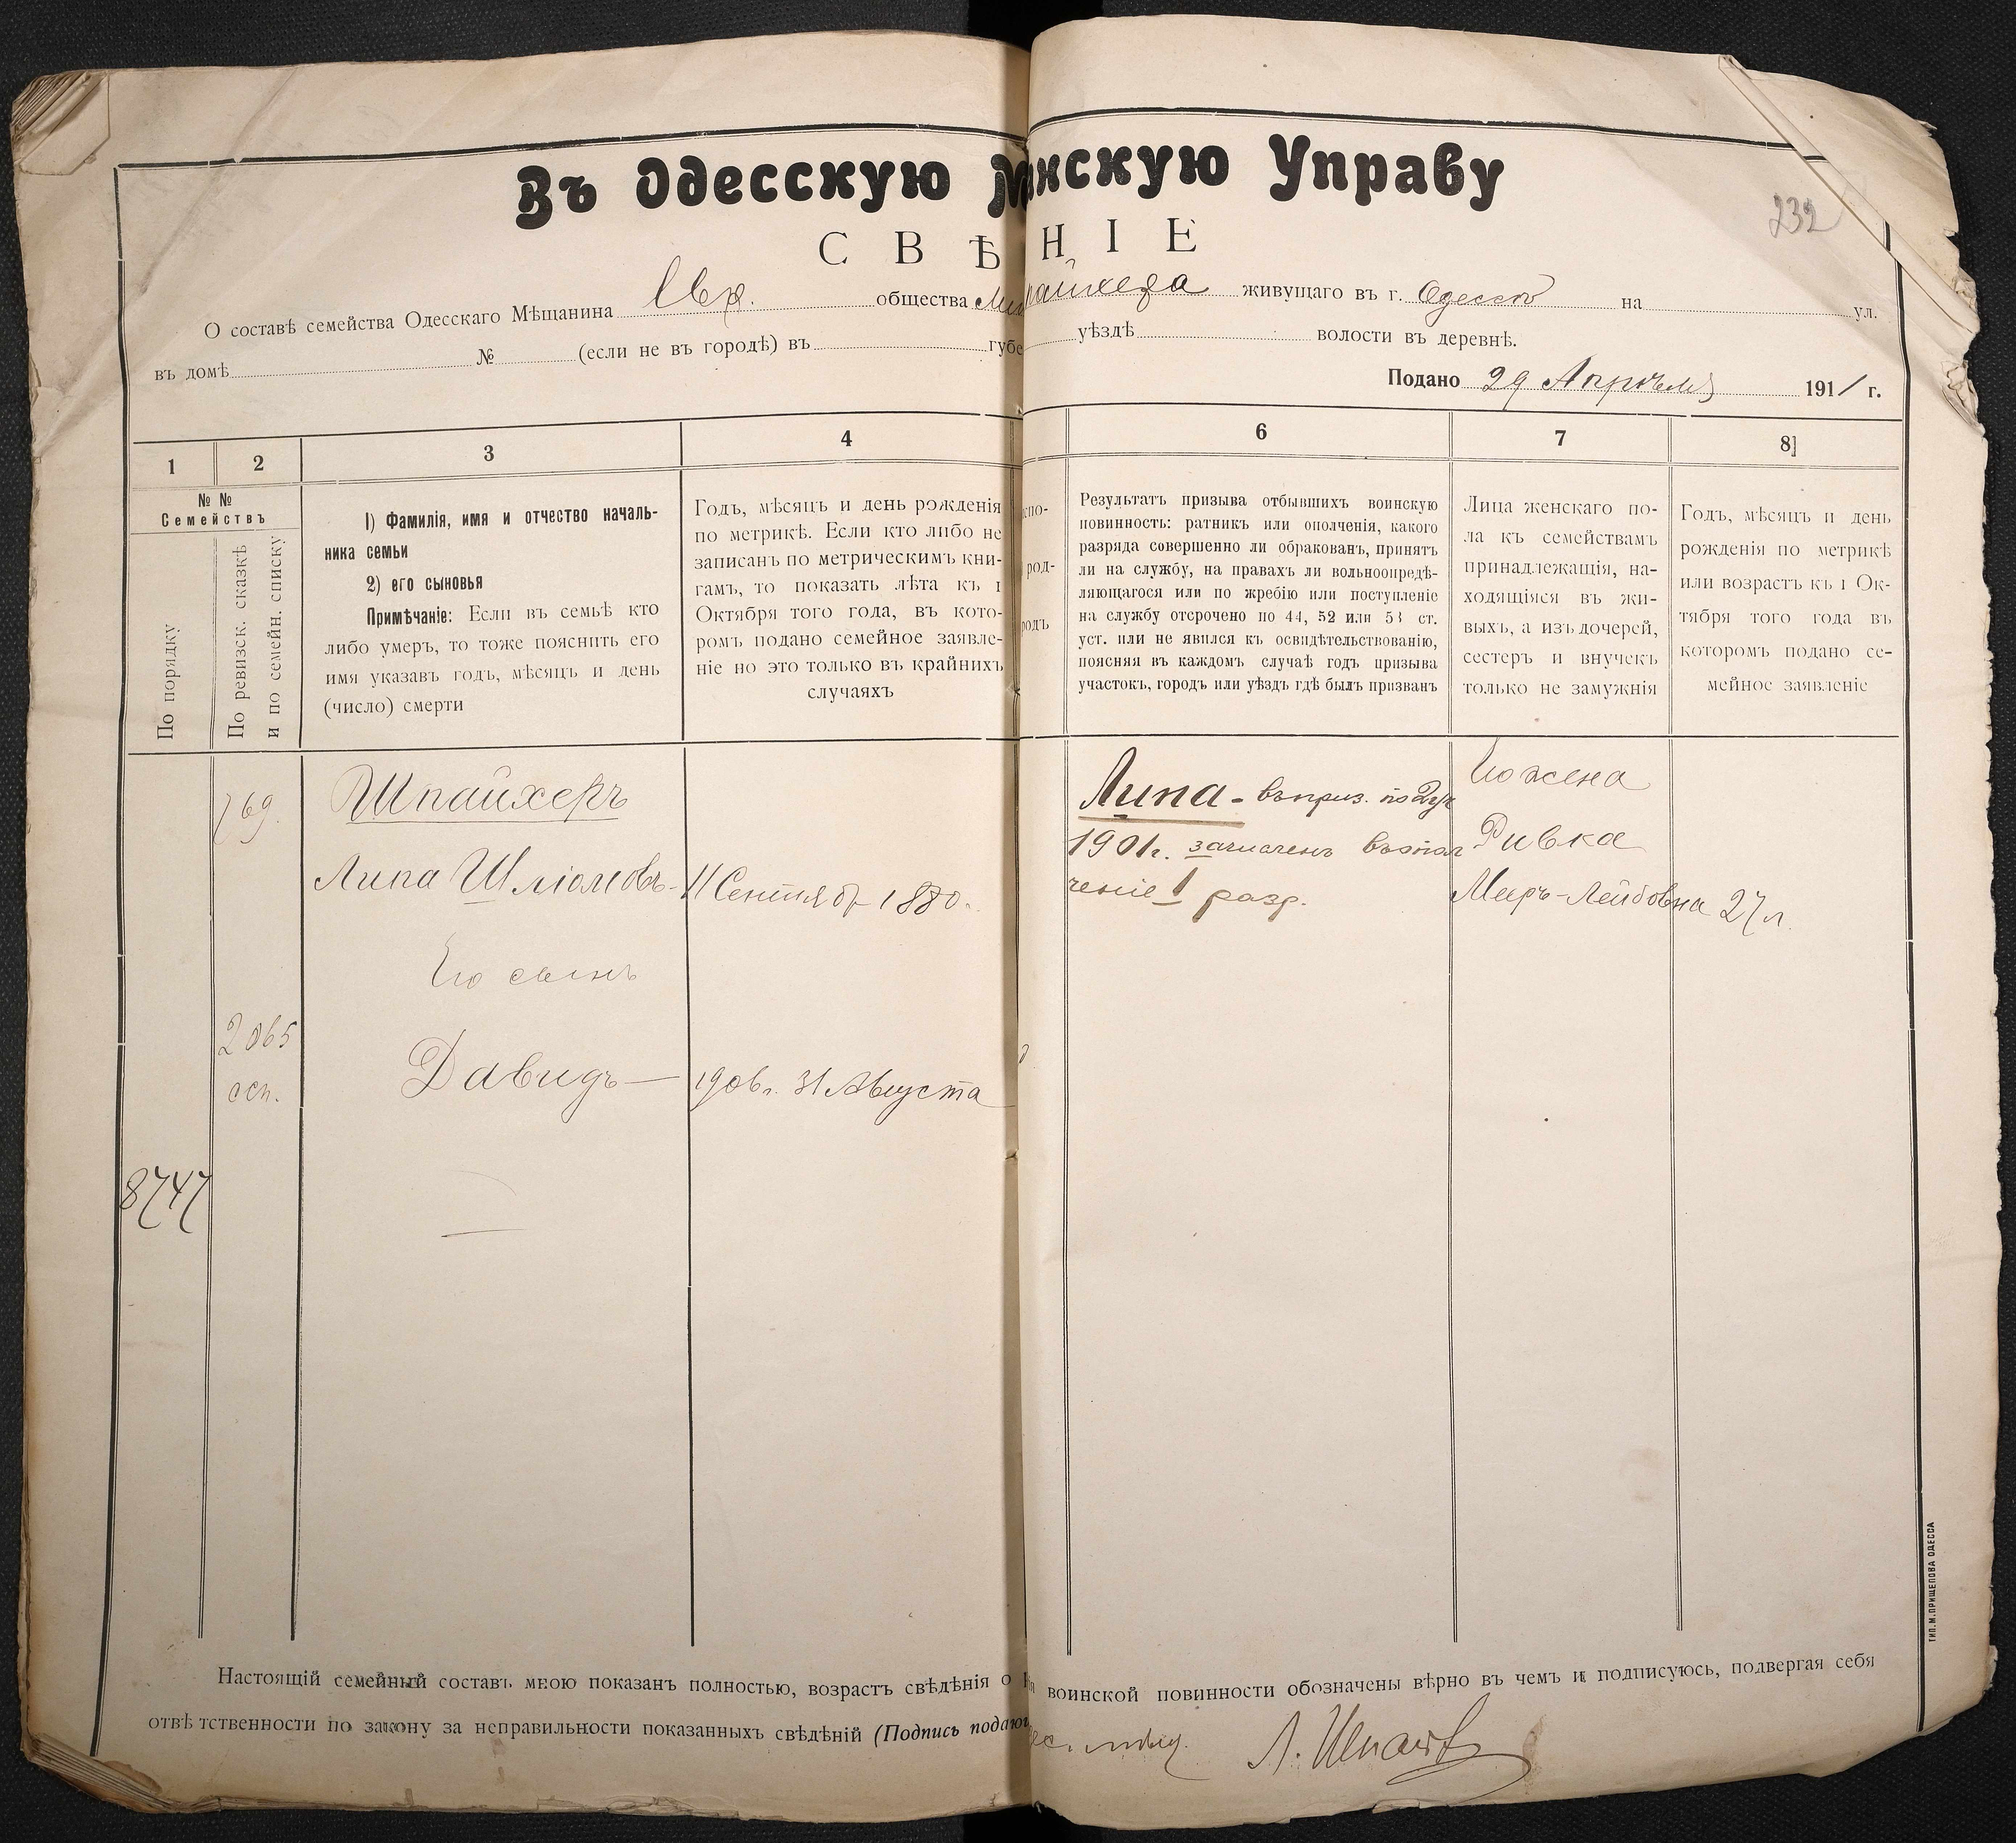 Въ Одесскую М нскую Управу
232
СВѢ НІЕ
О составѣ семейства Одесскаго Мѣщанина Евр. общества живущаго въ г. Одессѣ на ул.
въ домѣ № (если не въ городѣ) въ губе уѣздѣ волости въ деревнѣ.
Подано 29 Апрѣля 1911 г.
1 2 3 4 6 7 8]
№ №
Семействъ
По порядку
По ревизск. сказкѣ
и по семейн. списку
1) Фамилія, имя и отчество началь-
ника семьи
2) его сыновья
Примѣчаніе: Если въ семьѣ кто
либо умеръ, то тоже пояснить его
имя указавъ годъ, мѣсяцъ и день
(число) смерти
Годъ, мѣсяцъ и день рожденія
по метрикѣ. Если кто либо не
записанъ по метрическимъ кни-
гамъ, то показать лѣта къ 1
Октября того года, въ кото-
ромъ подано семейное заявле-
ніе но это только въ крайнихъ
случаяхъ
спо-
род-
родъ
Результатъ призыва отбывшихъ воинскую
повинность: ратникъ или ополченія, какого
разряда совершенно ли обракованъ, принятъ
ли на службу, на правахъ ли вольноопредѣ-
ляющагося или по жребію или поступленіе
на службу отсрочено по 44, 52 или 53 ст.
уст. или не явился къ освидѣтельствованію,
поясняя въ каждомъ случаѣ годъ призыва
участокъ, городъ или уѣздъ гдѣ былъ призванъ
Лица женскаго по-
ла къ семействамъ
принадлежащія, на-
ходящіяся въ жи-
выхъ, а изъ дочерей,
сестеръ и внучекъ
только не замужнія
Годъ, мѣсяцъ и день
рожденія по метрикѣ
или возрастъ къ 1 Ок-
тября того года въ
которомъ подано се-
мейное заявленіе
769.
Шпайхеръ
Липа Шліомовъ - 11 Сентября 1880 г.
Его сынъ
2065
Давидъ — 1906 г. 31 Августа
8747
Липа - въ приз. по 2 уч
1901 г. зачисленъ въ опол
ченіе 1 разр.
Его жена
Ривка
Меръ-Лейбовна 27 л.
Настоящій семейный составъ мною показанъ полностью, возрастъ свѣдѣнія о воинской повинности обозначены вѣрно въ чемъ и подписуюсь, подвергая себя
отвѣтственности по закону за неправильности показанныхъ свѣдѣній (Подпись подаю
ТИП. М. ПРИЩЕПОВА ОДЕССА